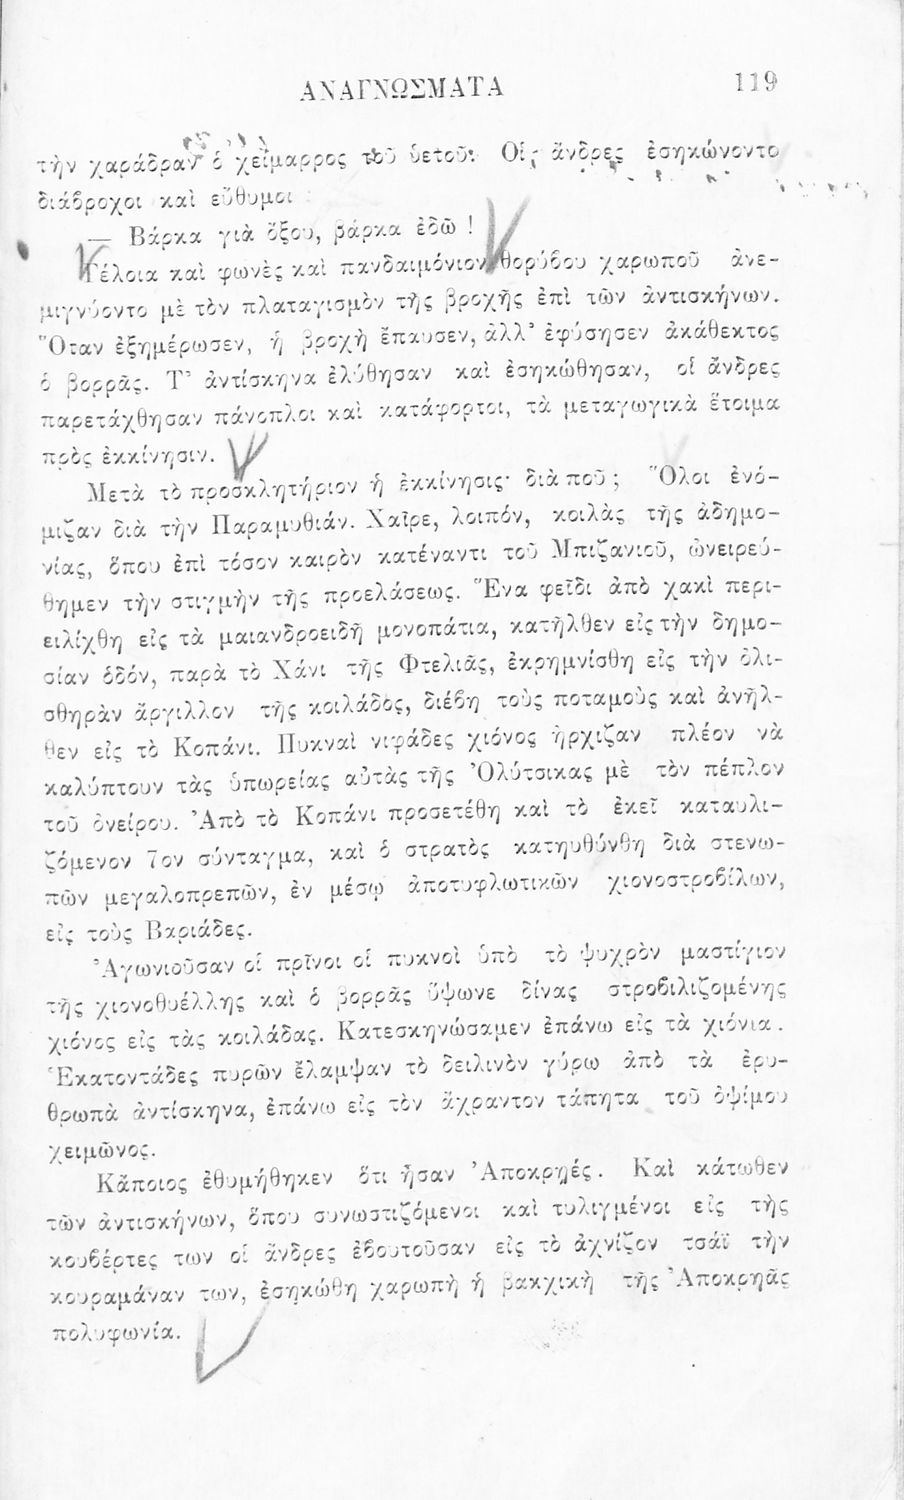 ΑΝΑΓΝΩΣΜΑΤΑ 119
τὴν χαράδραν ὁ χείμαρρος τοῦ ὑετοῦ· Οἱ ἄνδρες ἐσηκώνοντο
διάβροχοι καὶ εὔθυμοι
— Βάρκα γιὰ ὄξου, βάρκα ἐδῶ !
Γέλοια καὶ φωνὲς καὶ πανδαιμόνιον θορύβου χαρωποῦ ἀνε-
μιγνύοντο μὲ τὸν πλαταγισμὸν τῆς βροχῆς ἐπὶ τῶν ἀντισκήνων.
Ὅταν ἐξημέρωσεν, ἡ βροχὴ ἔπαυσεν, ἀλλ' ἐφύσησεν ἀκάθεκτος
ὁ βορρᾶς. Τ' ἀντίσκηνα ἐλύθησαν καὶ ἐσηκώθησαν, οἱ ἄνδρες
παρετάχθησαν πάνοπλοι καὶ κατάφορτοι, τὰ μεταγωγικὰ ἕτοιμα
πρὸς ἐκκίνησιν.
Μετὰ τὸ προσκλητήριον ἡ ἐκκίνησις· διὰ ποῦ ; Ὅλοι ἐνό-
μιζαν διὰ τὴν Παραμυθιάν. Χαῖρε, λοιπόν, κοιλὰς τῆς ἀδημο-
νίας, ὅπου ἐπὶ τόσον καιρὸν κατέναντι τοῦ Μπιζανιοῦ, ὠνειρεύ-
θημεν τὴν στιγμὴν τῆς προελάσεως. Ἕνα φεῖδι ἀπὸ χακὶ περι-
ειλίχθη εἰς τὰ μαιανδροειδῆ μονοπάτια, κατῆλθεν εἰς τὴν δημο-
σίαν ὁδόν, παρὰ τὸ Χάνι τῆς Φτελιᾶς, ἐκρημνίσθη εἰς τὴν ὀλι-
σθηρὰν ἄργιλλον τῆς κοιλάδος, διέβη τοὺς ποταμοὺς καὶ ἀνῆλ-
θεν εἰς τὸ Κοπάνι. Πυκναὶ νιφάδες χιόνος ἤρχιζαν πλέον νὰ
καλύπτουν τὰς ὑπωρείας αὐτὰς τῆς Ὀλύτσικας μὲ τὸν πέπλον
τοῦ ὀνείρου. Ἀπὸ τὸ Κοπάνι προσετέθη καὶ τὸ ἐκεῖ καταυλι-
ζόμενον 7ον σύνταγμα, καὶ ὁ στρατὸς κατηυθύνθη διὰ στενω-
πῶν μεγαλοπρεπῶν, ἐν μέσῳ ἀποτυφλωτικῶν χιονοστροβίλων,
εἰς τοὺς Βαριάδες.
Ἀγωνιοῦσαν οἱ πρῖνοι οἱ πυκνοὶ ὑπὸ τὸ ψυχρὸν μαστίγιον
τῆς χιονοθυέλλης καὶ ὁ βορρᾶς ὕψωνε δίνας στροβιλιζομένης
χιόνος εἰς τὰς κοιλάδας. Κατεσκηνώσαμεν ἐπάνω εἰς τὰ χιόνια.
Ἑκατοντάδες πυρῶν ἔλαμψαν τὸ δειλινὸν γύρω ἀπὸ τὰ ἐρυ-
θρωπὰ ἀντίσκηνα, ἐπάνω εἰς τὸν ἄχραντον τάπητα τοῦ ὀψίμου
χειμῶνος.
Κἄποιος ἐθυμήθηκεν ὅτι ἦσαν Ἀποκρηές. Καὶ κάτωθεν
τῶν ἀντισκήνων, ὅπου συνωστιζόμενοι καὶ τυλιγμένοι εἰς τῆς
κουβέρτες των οἱ ἄνδρες ἐβουτοῦσαν εἰς τὸ ἀχνίζον τσάϊ τὴν
κουραμάναν των, ἐσηκώθη χαρωπὴ ἡ βακχικὴ τῆς Ἀποκρηᾶς
πολυφωνία.